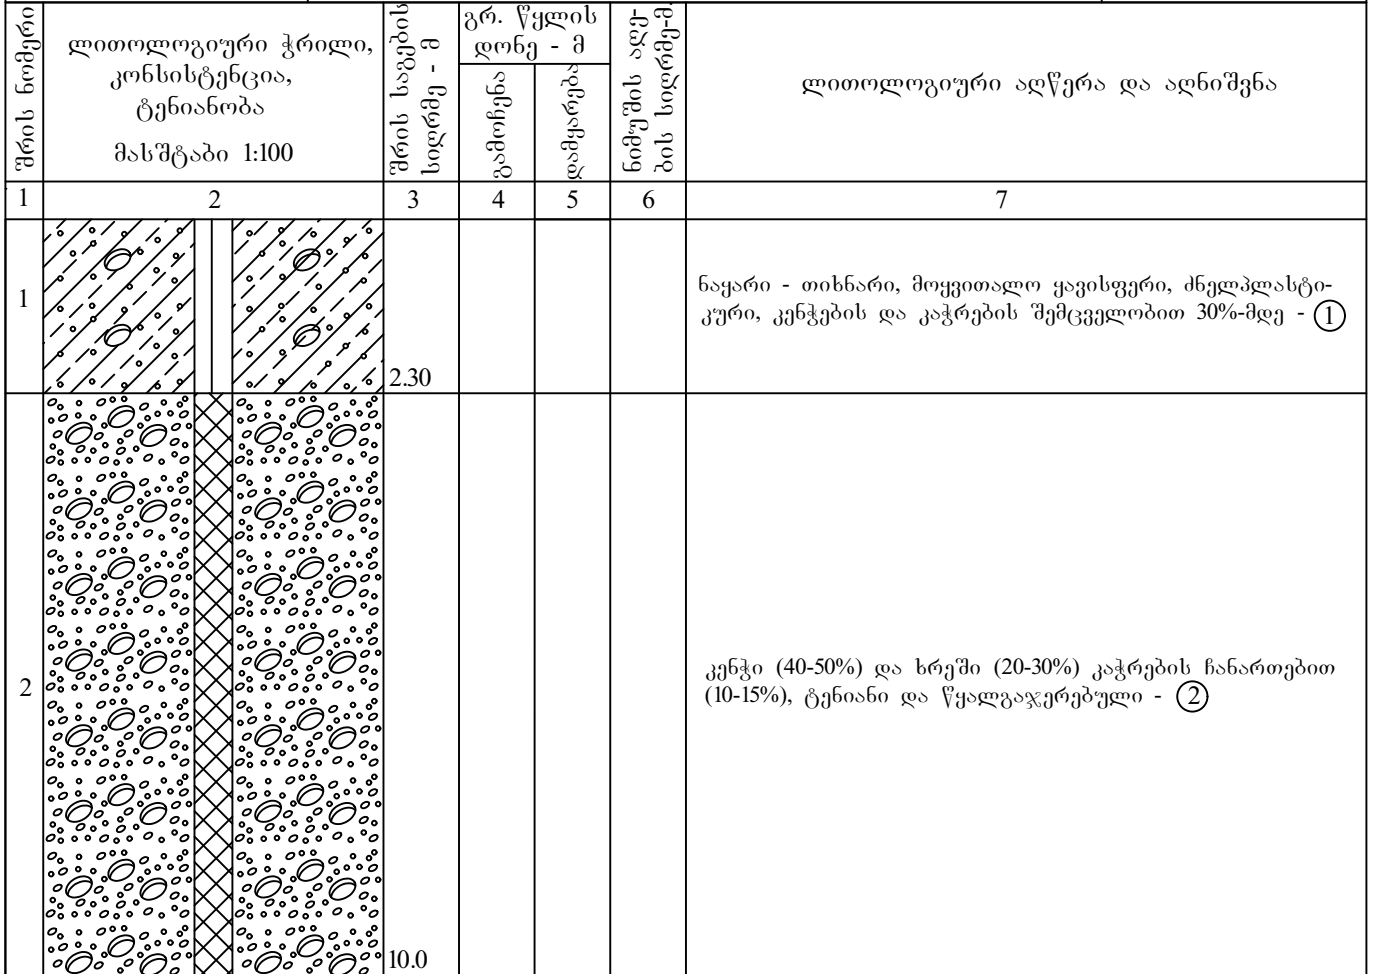 შრის ნომერი
ლითოლოგიური ჭრილი,
კონსისტენცია,
ტენიანობა
მასშტაბი 1:100
შრის საგების
სიღრმე - მ
გრ. წყლის
დონე - მ
გამოჩენა
დამყარება
ნიმუშის აღე-
ბის სიღრმე-მ.
ლითოლოგიური აღწერა და აღნიშვნა
1 2 3 4 5 6 7
1
ნაყარი - თიხნარი, მოყვითალო ყავისფერი, ძნელპლასტი-
კური, კენჭების და კაჭრების შემცველობით 30%-მდე - 1
2.30
2
კენჭი (40-50%) და ხრეში (20-30%) კაჭრების ჩანართებით
(10-15%), ტენიანი და წყალგაჯერებული - 2
10.0